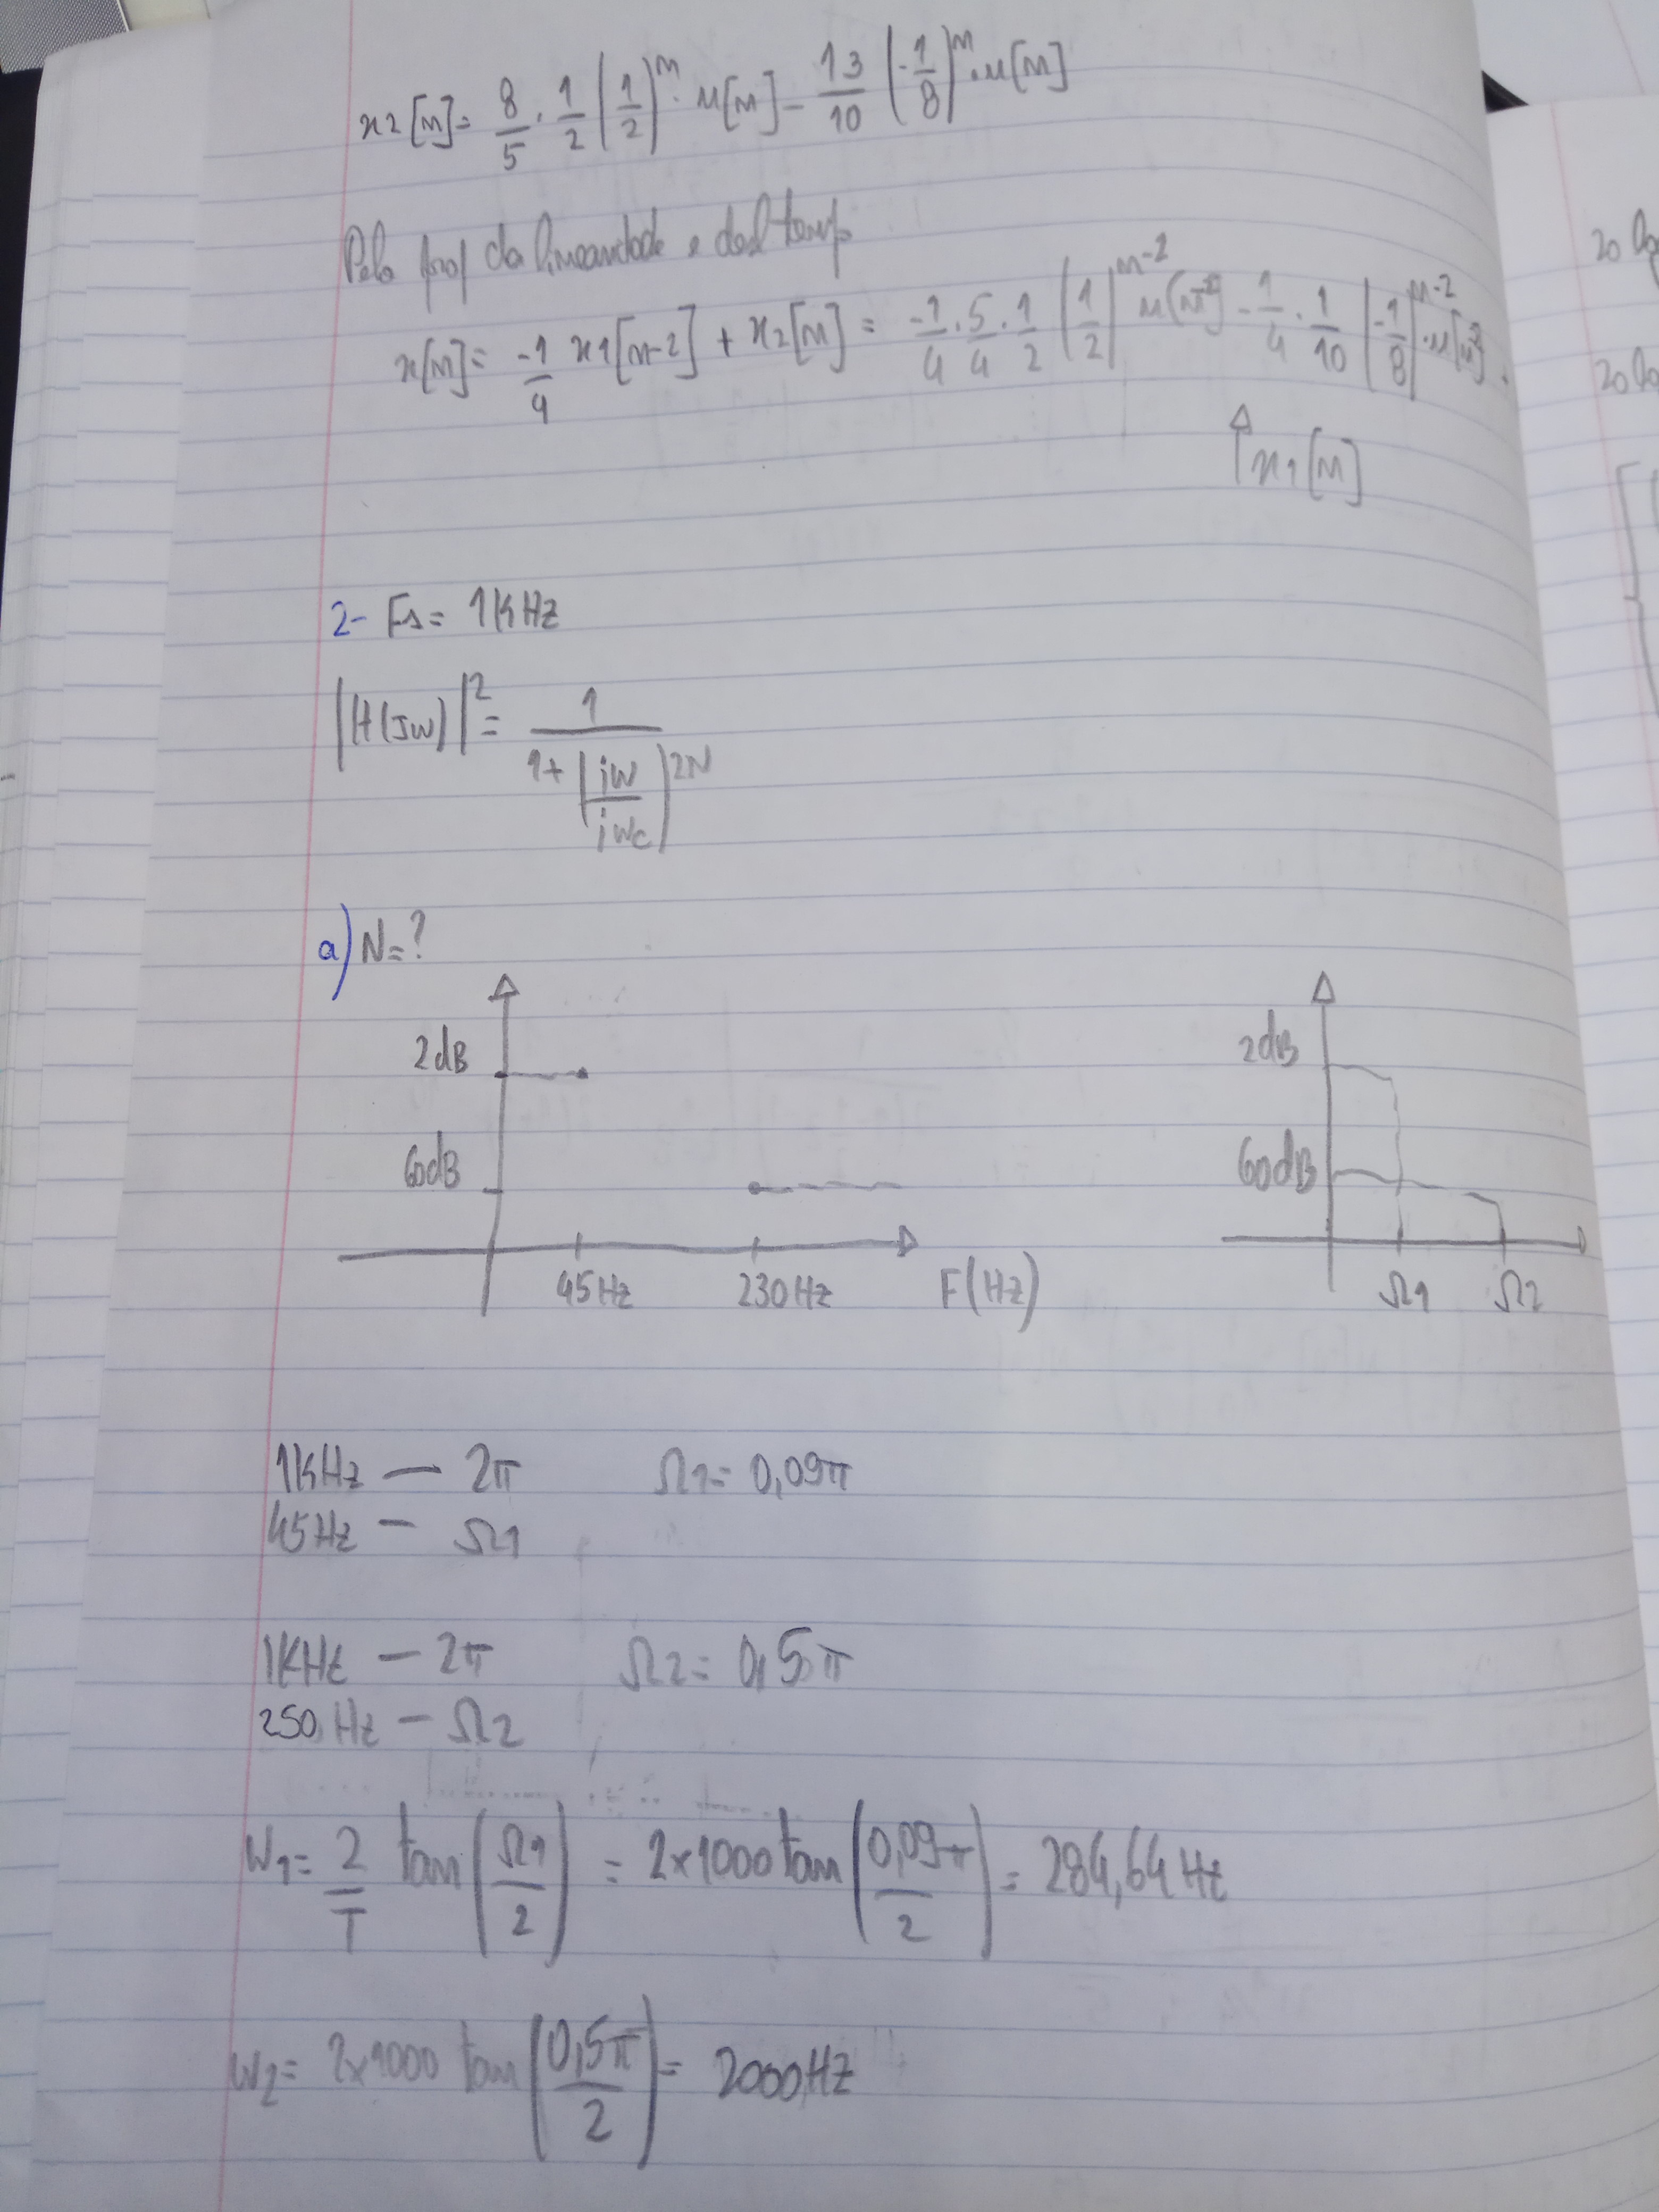 x2[n]= 8/5 . 1/2 (1/2)^n . u[n] - 13/10 (-1/8)^n . u[n]
Pela prop da linearidade e desl temp
x[n]= -1/4 x1[n-2] + x2[n] = -1/4 . 5/4 . 1/2 (1/2)^n-2 u[n-2] - 1/4 . 1/10 (-1/8)^n-2 . u[n-2] .
x1[n]
20
20
2- Fs= 1KHz
|H(Jw)|^2 = 1/(1+(jw/jwc)^2N)
a) N=?
2dB
60dB
45Hz 230Hz F(Hz)
2dB
60dB
Ω1 Ω2
1KHz — 2π Ω1= 0,09π
45Hz — Ω1
1KHz — 2π Ω2= 0,5π
250Hz — Ω2
W1= 2/T tan(Ω1/2) = 2x1000 tan(0,09π/2) = 284,64Hz
W2= 2x1000 tan(0,5π/2) = 2000Hz